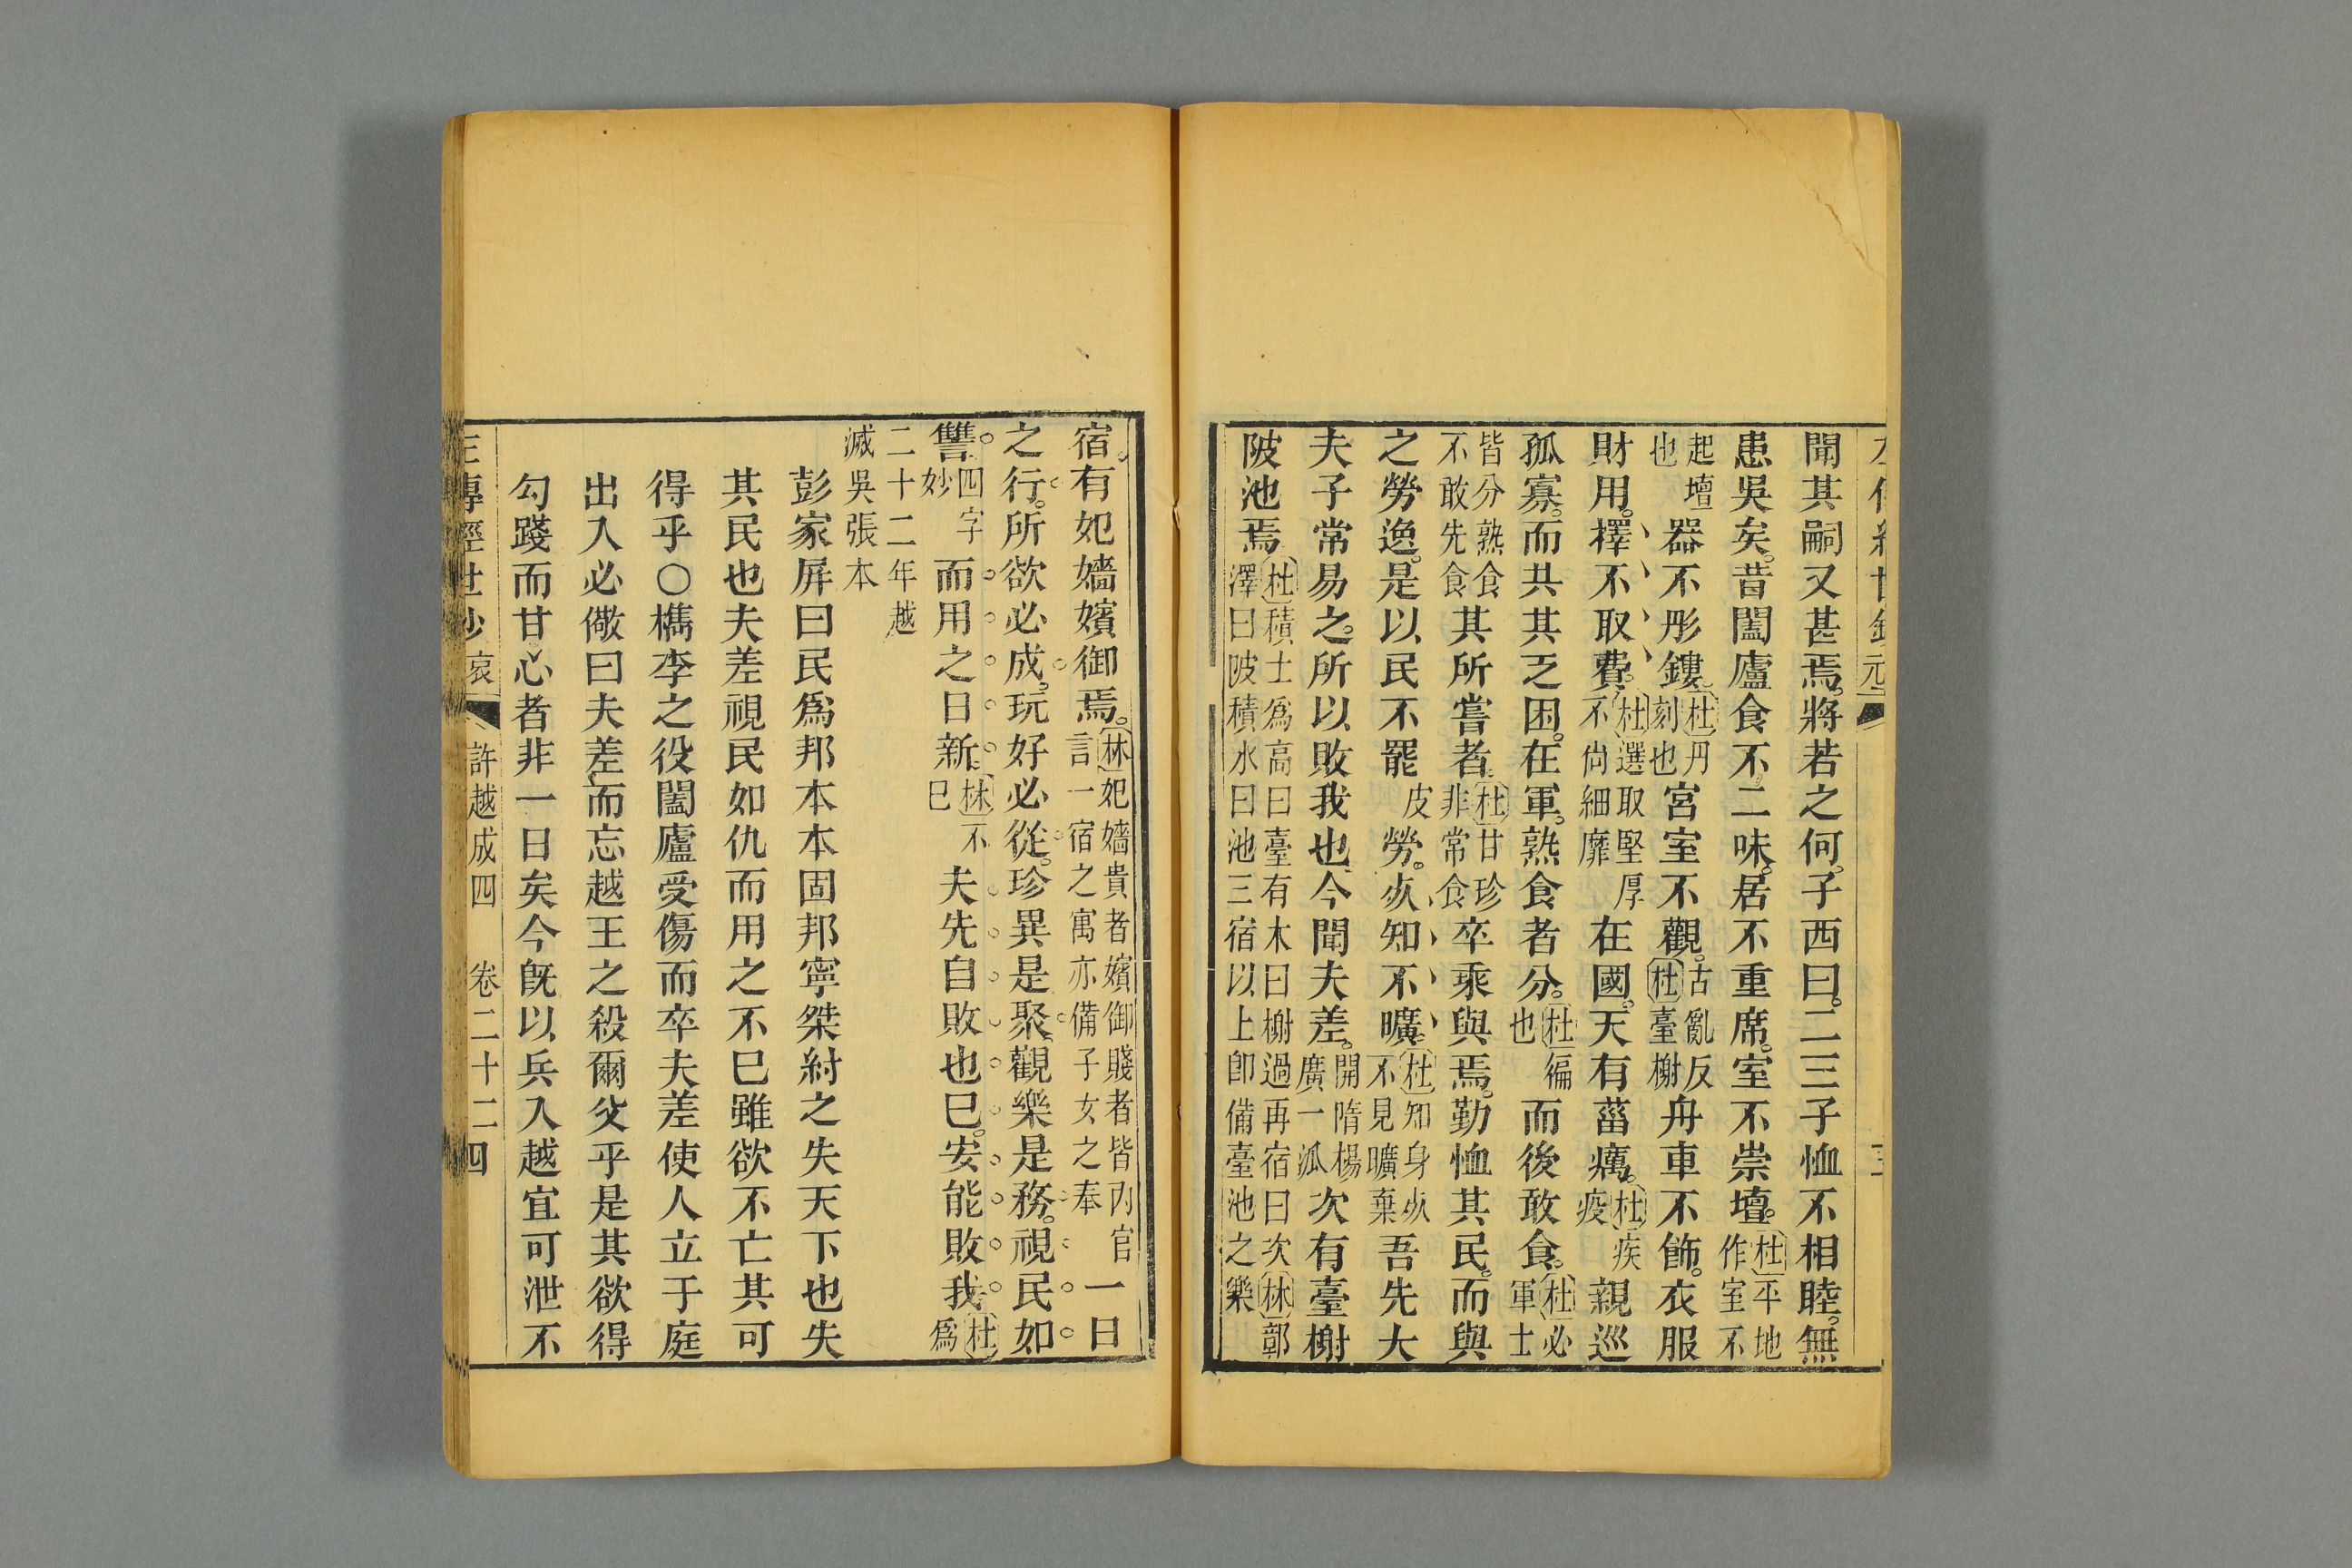 聞其嗣又甚焉。將若之何。子西曰。二三子恤不相睦。無
患吳矣。昔闔廬食不二味。居不重席。室不崇壇。杜平地作室不
起壇也器不彤鏤。杜丹刻也宮室不觀。古亂反杜臺榭舟車不飾。衣服
財用。擇不取費。杜選取堅厚不尙細靡在國。天有菑癘。杜疾疫親巡
孤寡。而共其乏困。在軍。熟食者分。杜徧也而後敢食。杜必軍士
皆分熟食不敢先食其所嘗者。杜甘珍非常食卒乘與焉。勤恤其民。而與
之勞逸。是以民不罷皮勞。死知不曠。杜知身死不見曠棄吾先大
夫子常易之。所以敗我也。今聞夫差。開隋楊廣一派次有臺榭
陂池焉杜積土爲高曰臺有木曰榭過再宿曰次林鄣澤曰陂積水曰池三宿以上卽備臺池之樂
宿。有妃嬙嬪御焉。林妃嬙貴者嬪御賤者皆內官言一宿之寓亦備子女之奉一日
之行。所欲必成。玩好必從。珍異是聚。觀樂是務。視民如
讐。四字妙而用之日新。林不已夫先自敗也已。安能敗我。杜爲
二十二年越滅吳張本
彭家屛曰民爲邦本本固邦寧桀紂之失天下也失
其民也夫差視民如仇而用之不已雖欲不亡其可
得乎〇檇李之役闔廬受傷而卒夫差使人立于庭
出入必儆曰夫差而忘越王之殺爾父乎是其欲得
勾踐而甘心者非一日矣今旣以兵入越宜可泄不
哀 許越成四 卷二十二 四